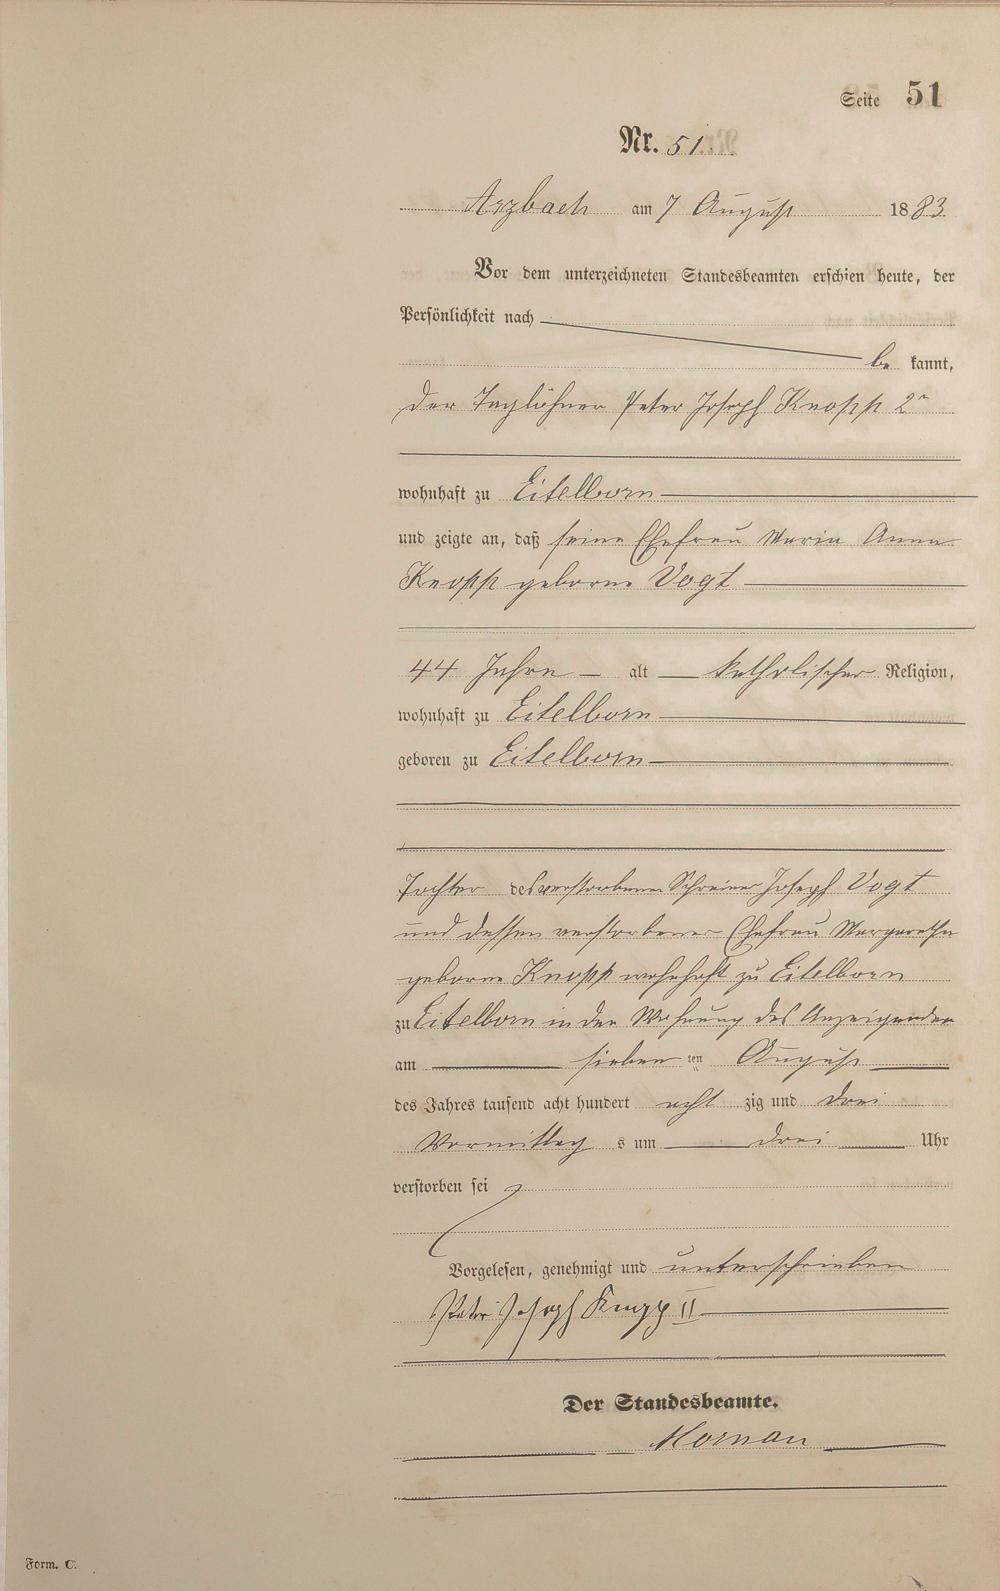 Seite 51
Nr. 51.
Arzbach am 7 August 1883.
Vor dem unterzeichneten Standesbeamten erschien heute, der
Persönlichkeit nach
be kannt,
der Taglöhner Peter Joseph Knopp 2r
wohnhaft zu Eitelborn
und zeigte an, daß seine Ehefrau Maria Anna
Knopp geborne Vogt
44 Jahre alt katholischer Religion,
wohnhaft zu Eitelborn
geboren zu Eitelborn
Tochter des verstorbenen Schreiner Joseph Vogt
und dessen verstorbener Ehefrau Margaretha
geborne Knopp wohnhaft zu Eitelborn
zu Eitelborn in der Wohnung des Anzeigenden
am sieben ten August
des Jahres tausend acht hundert acht zig und drei
Vormittag s um drei Uhr
verstorben sei
Vorgelesen, genehmigt und unterschrieben
Peter Joseph Knopp II
Der Standesbeamte.
Form. C.